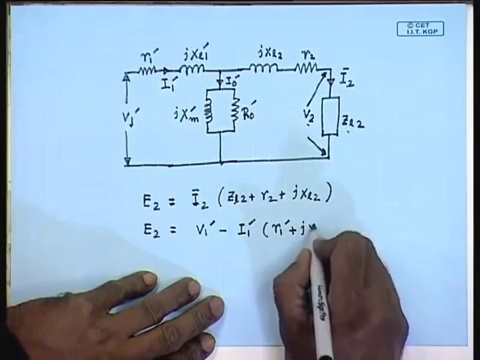 © CET
I.I.T. KGP
r₁′ jxₗ₁′ jxₗ₂ r₂
I₁′ I₀′ Ī₂
V₁′ jXₘ′ R₀′ V₂ Zₗ₂
E₂ = Ī₂ (Zₗ₂ + r₂ + jxₗ₂)
E₂ = V₁′ - I₁′ (r₁′ + jx